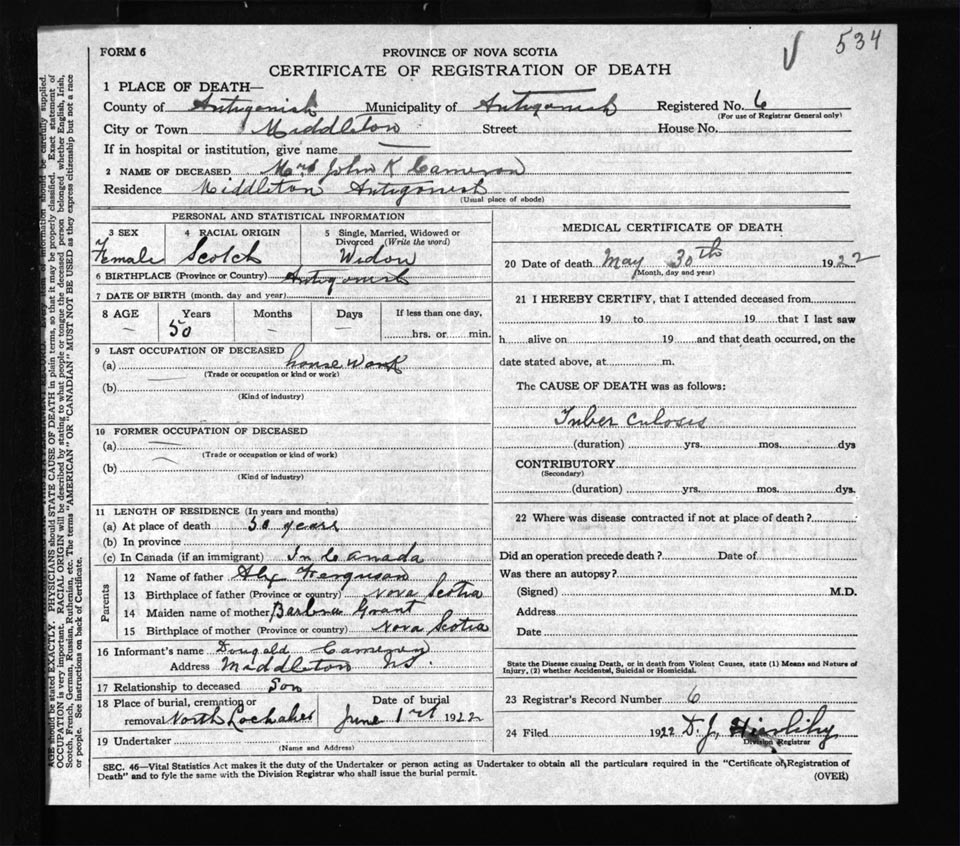 534
FORM 6
PROVINCE OF NOVA SCOTIA
CERTIFICATE OF REGISTRATION OF DEATH
1 PLACE OF DEATH—
County of Antigonish Municipality of Antigonish Registered No. 6
(For use of Registrar General only)
City or Town Middleton Street House No.
If in hospital or institution, give name —
2 NAME OF DECEASED Mrs John K Cameron
Residence Middleton Antigonish
(Usual place of abode)
PERSONAL AND STATISTICAL INFORMATION
3 SEX 4 RACIAL ORIGIN 5 Single, Married, Widowed or
Divorced (Write the word)
Female Scotch Widow
6 BIRTHPLACE (Province or Country) Antigonish
7 DATE OF BIRTH (month, day and year)
8 AGE Years Months Days If less than one day,
— 50 — — hrs. or min.
9 LAST OCCUPATION OF DECEASED
(a) house work
(Trade or occupation or kind or work)
(b)
(Kind of industry)
10 FORMER OCCUPATION OF DECEASED
(a)
(Trade or occupation or kind of work)
(b)
(Kind of industry)
11 LENGTH OF RESIDENCE (In years and months)
(a) At place of death 50 years
(b) In province
(c) In Canada (if an immigrant) In Canada
Parents
12 Name of father Alex Ferguson
13 Birthplace of father (Province or country) Nova Scotia
14 Maiden name of mother Grant
15 Birthplace of mother (Province or country) Nova Scotia
16 Informant's name Dougald Cameron
Address Middleton NS.
17 Relationship to deceased Son
18 Place of burial, cremation or Date of burial
removal North Lochaber June 1st 1922
19 Undertaker
(Name and Address)
MEDICAL CERTIFICATE OF DEATH
20 Date of death May 30th 1922
(Month, day and year)
21 I HEREBY CERTIFY, that I attended deceased from
19 to 19 that I last saw
h alive on 19 and that death occurred, on the
date stated above, at m.
The CAUSE OF DEATH was as follows:
Tuber culosis
(duration) yrs. mos. dys
CONTRIBUTORY
(Secondary)
(duration) yrs. mos. dys.
22 Where was disease contracted if not at place of death?
Did an operation precede death? Date of
Was there an autopsy?
(Signed) M.D.
Address
Date
State the Disease causing Death, or in death from Violent Causes, state (1) Means and Nature of
Injury, (2) whether Accidental, Suicidal or Homicidal.
23 Registrar's Record Number 6
24 Filed 1922 D. J.
Division Registrar
SEC. 46—Vital Statistics Act makes it the duty of the Undertaker or person acting as Undertaker to obtain all the particulars required in the "Certificate of Registration of
Death" and to fyle the same with the Division Registrar who shall issue the burial permit.
(OVER)
AGE should be stated EXACTLY. PHYSICIANS should STATE CAUSE OF DEATH in plain terms, so that it may be properly classified. Exact statement of
OCCUPATION is very important. RACIAL ORIGIN will be described by stating to what people or tongue the deceased person belonged, whether English, Irish,
Scotch, French, German, Russian, Ruthenian, etc. The terms "AMERICAN" OR "CANADIAN" MUST NOT BE USED as they express citizenship but not a race
or people. See instructions on back of Certificate.